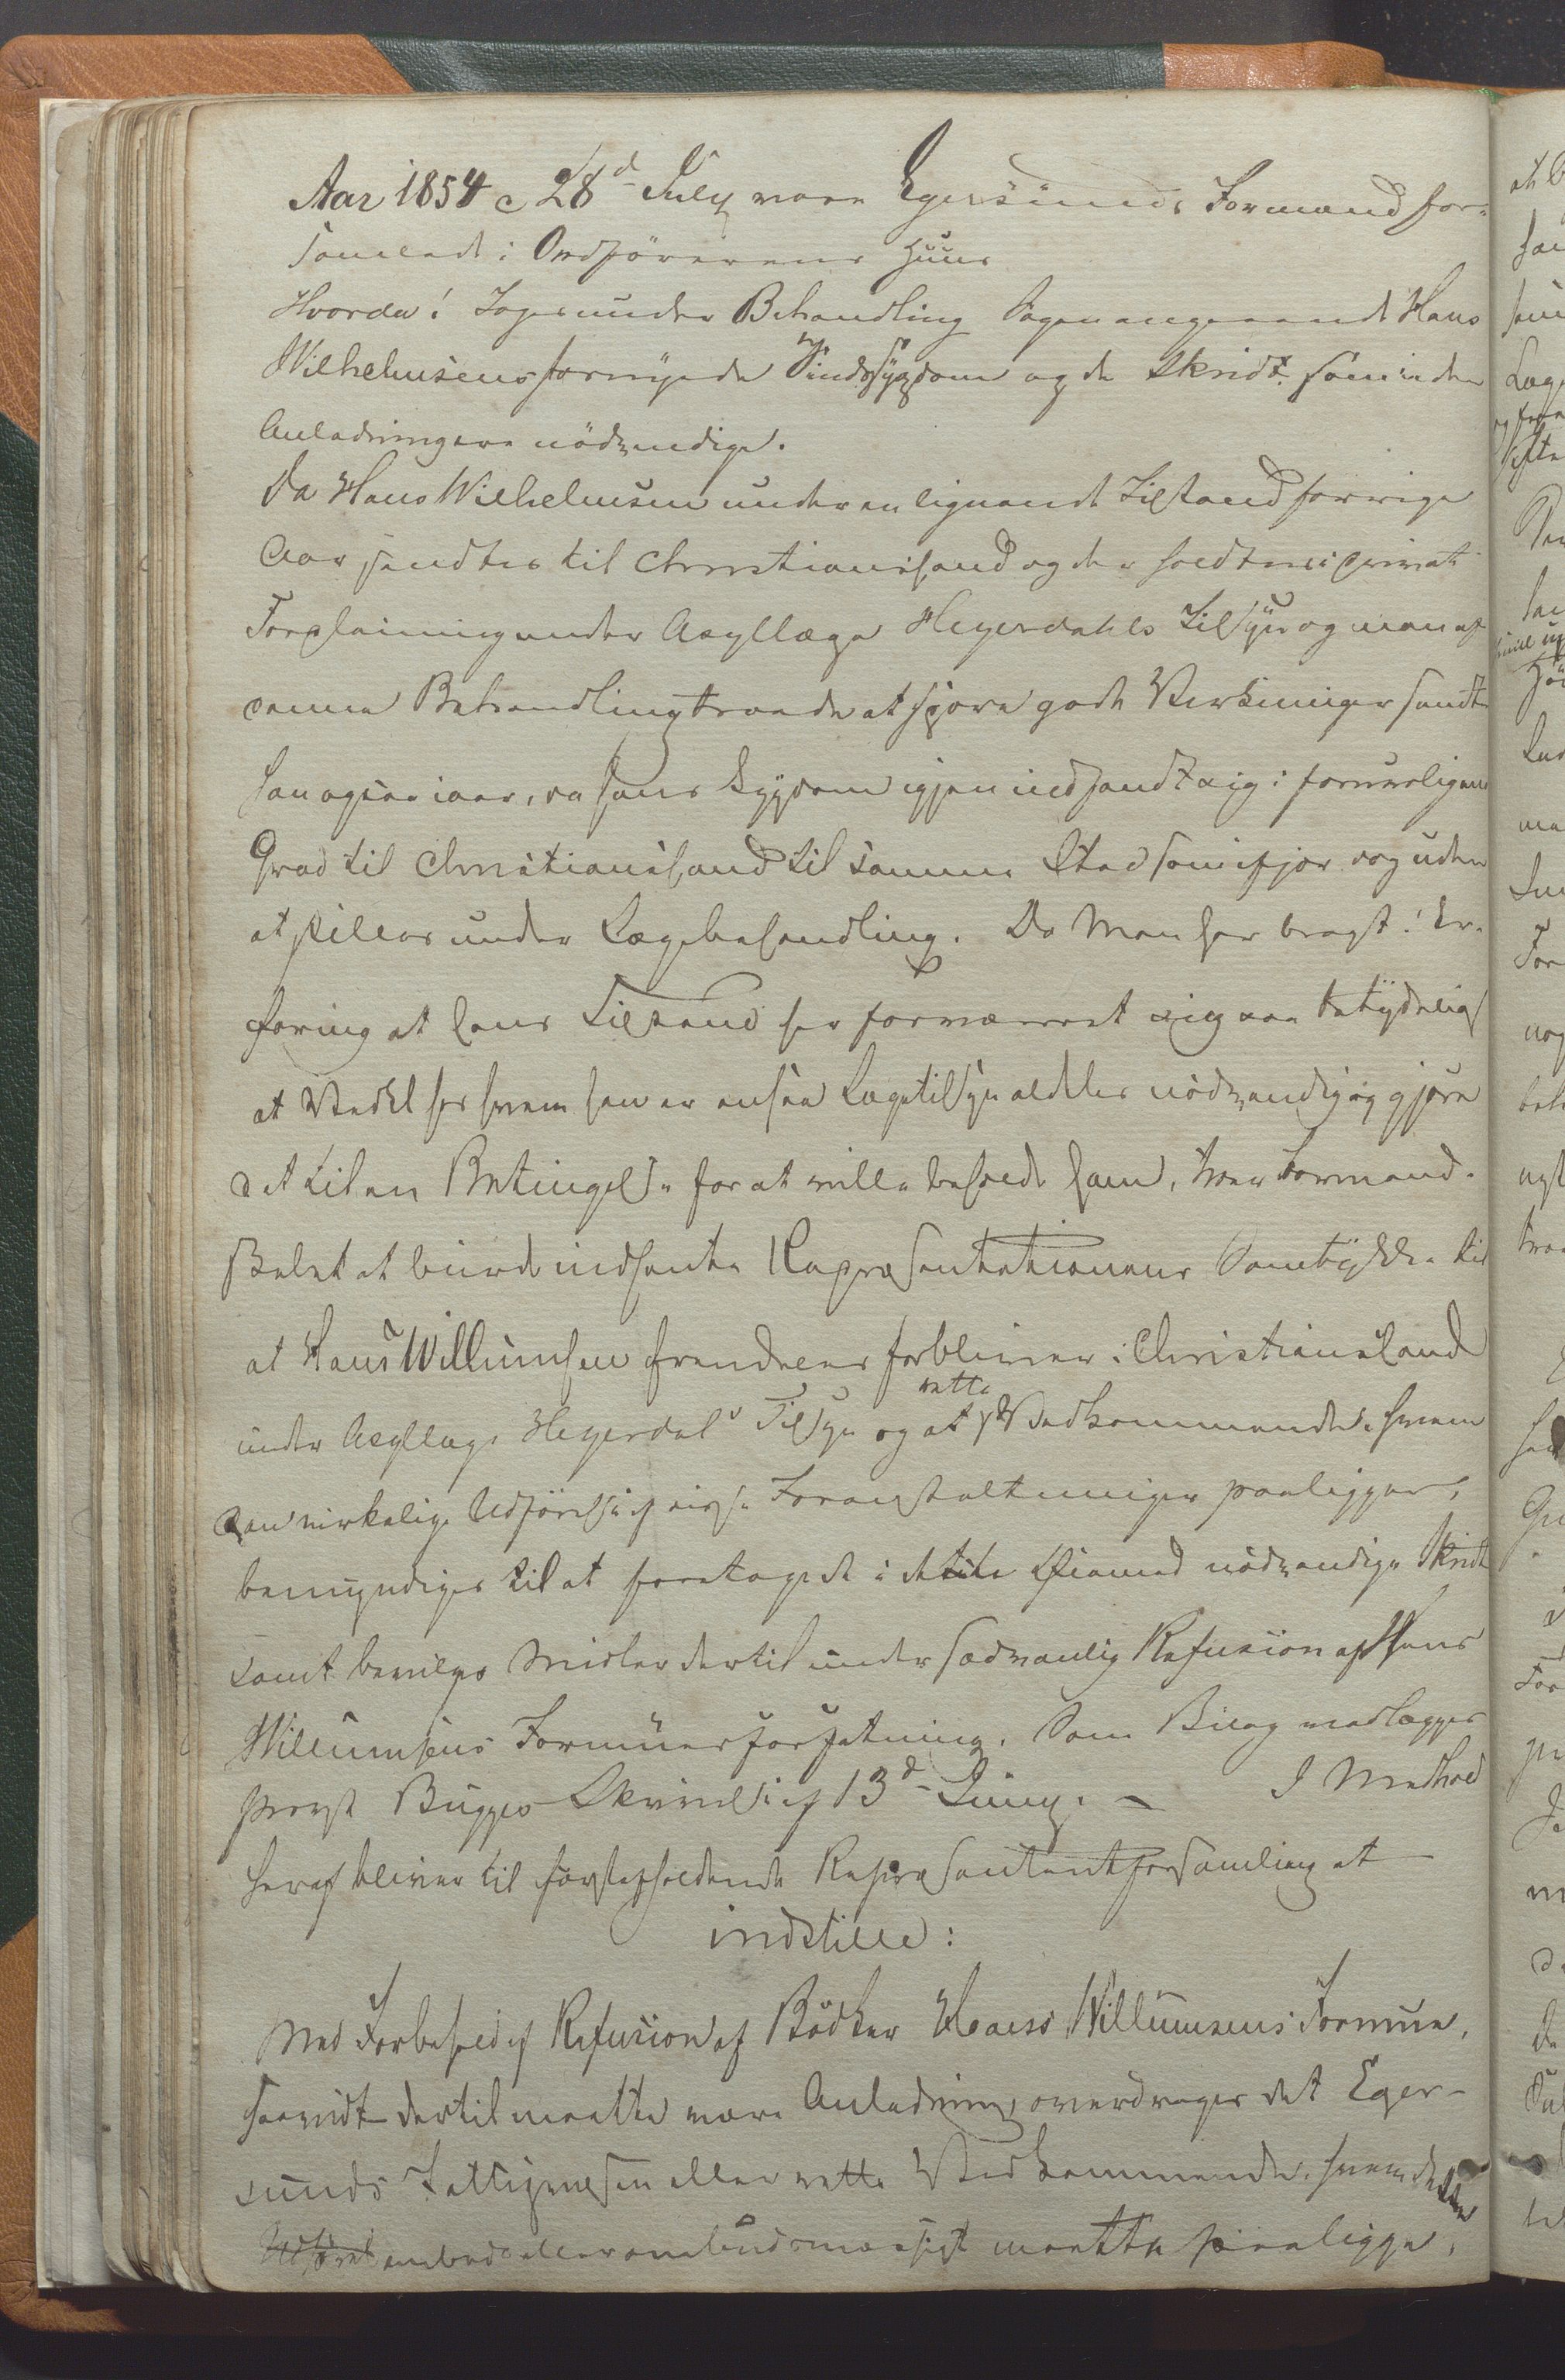 Aar 1854 d 28d July vare Egersunds Formænd for-
samlede i Ordförerens Huus
Hvorda! toges under Behandling Sagen angaaende Hans
Wilhelmsens fornyede Sindssygdom og de Skridt som i den
Anledning ere nödvendige.
Da Hans Wilhelmsen under en lignende Tilstand forrige
Aar sendtes til Christianssand og der holdtes i privat
Forpleining under Asyllæge Heyerdahls Tilsyn og man af
denne Behandling troede at spore gode Virkninger sendte
han ogsaa iaar, da hans Sygdom igjen indfandt sig i foruroligende
Grad til Christianssand til samme Sted som ifjor dog uden
at stilles under Lægebehandling. Da Man har bragt i Er-
faring at hans Tilstand har forværret sig saa betydelig
at Vedkl hos hvem han er ansaa Lægetilsyn aldeles nödvendig og gjöre
det til en Betingelse for at ville beholde ham, troer Formand-
skabet at burde indhente Repræsentationens Samtykke til
at Hans Willumsen fremdeles forbliver i Christianssand
under Asyllæge Heyerdals Tilsyn og at rette Vedkommende, hvem
den virkelige Udförelse af disse Foranstaltninger paaligger,
bemyndiges til at foretage de i dette Öiemed nödvendige Skridt
samt bevilges Midler dertil under sædvanlig Refusion af Hans
Willumsens Formuesforfatning. Som Bilag medlægges
Provst Bugges Skrivelse af 13d Juny. – I Medhold
heraf bliver til förstafholdende Repræsentantforsamling at
indstille:
Med Forbehold af Refusion af Bödker Hans Willumsens Formue,
saavidt dertil maatte være Anledning, overdrages det Eger-
sunds Fattigvæsen eller rette Vedkommende, hvem dets
Udförel embeds eller ombudsmæssigt maatte paaligge,